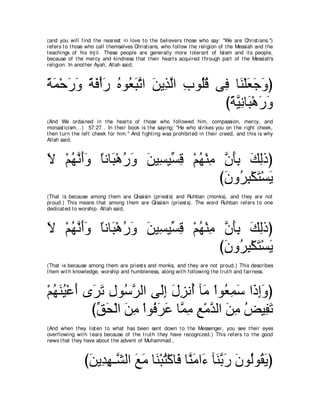 (and you will find the nearest in love to the believers those who say: "We are Christians.")
refers to those who call themselves Christians, who follow the religion of the Messiah and the
teachings of his Injil. These people are generally more tolerant of Islam and its people,
because of the mercy and kindness that their hearts acquired through part of the Messiah's
religion. In another Ayah, Allah said;
﴿وَجَعَلْنَا فِى قُلُوبِ الَّذِينَ اتَّبَعُوهُ رَأْفَةً وَرَحْمَةً
وَرَهْبَانِيَّةً﴾
(And We ordained in the hearts of those who followed him, compassion, mercy, and
monasticism...) 57:27 . In their book is the saying; "He who strikes you on the right cheek,
then turn the left cheek for him." And fighting was prohibited in their creed, and this is why
Allah said,
﴿ذَلِكَ بِأَنَّ مِنْهُمْ قِسِّيسِينَ وَرُهْبَاناً وَأَنَّهُمْ لاَ
يَسْتَكْبِرُونَ﴾
(That is because among them are Qissisin (priests) and Ruhban (monks), and they are not
proud.) This means that among them are Qissisin (priests). The word Ruhban refers to one
dedicated to worship. Allah said,
﴿ذَلِكَ بِأَنَّ مِنْهُمْ قِسِّيسِينَ وَرُهْبَاناً وَأَنَّهُمْ لاَ
يَسْتَكْبِرُونَ﴾
(That is because among them are priests and monks, and they are not proud.) This describes
them with knowledge, worship and humbleness, along with following the truth and fairness.
﴿وَإِذَا سَمِعُواْ مَآ أُنزِلَ إِلَى الرَّسُولِ تَرَى أَعْيُنَهُمْ
تَفِيضُ مِنَ الدَّمْعِ مِمَّا عَرَفُواْ مِنَ الْحَقِّ﴾
(And when they listen to what has been sent down to the Messenger, you see their eyes
overflowing with tears because of the truth they have recognized.) This refers to the good
news that they have about the advent of Muhammad .
﴿يَقُولُونَ رَبَّنَآ ءَامَنَّا فَاكْتُبْنَا مَعَ الشَّـهِدِينَ﴾